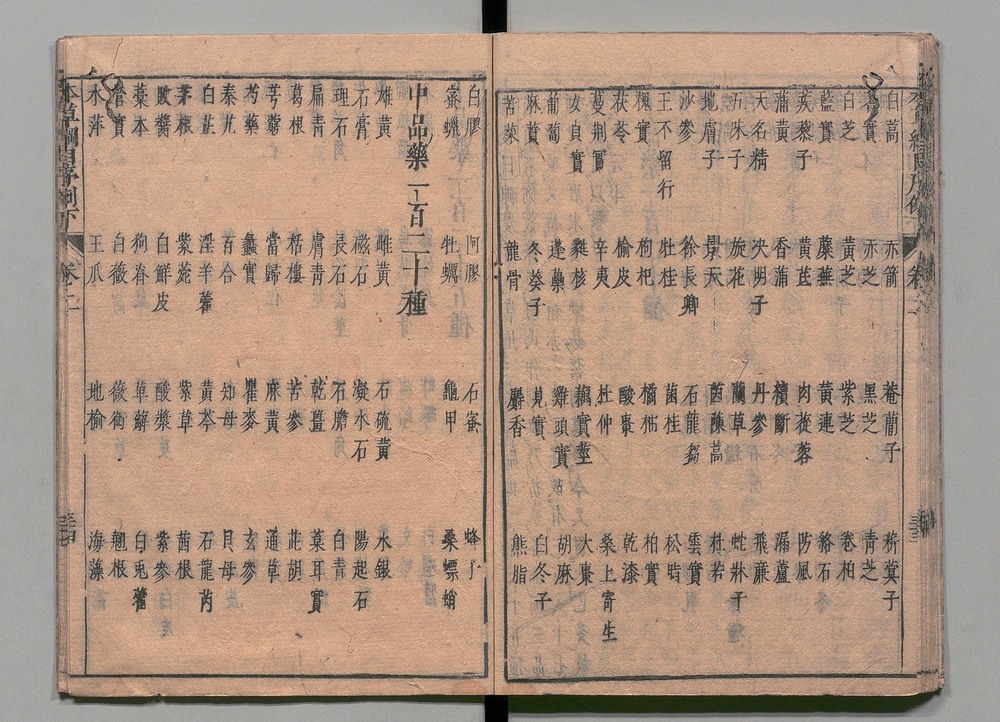 白蒿 赤箭 菴䕡子 菥蓂子
蓍實 赤芝 黑芝 青芝
白芝 黃芝 紫芝 卷柏
藍實 蘼蕪 黃連 絡石
蒺藜子 黃芪 肉蓯蓉 防風
蒲黃 香蒲 續斷 漏蘆
天名精 決明子 丹參 飛廉
五味子 旋花 蘭草 蛇牀子
地膚子 景天 茵蔯蒿 杜若
沙參 徐長卿 石龍芻 雲實
王不留行 牡桂 菌桂 松脂
槐實 枸杞 橘柚 柏實
茯苓 榆皮 酸棗 乾漆
蔓荆實 辛夷 杜仲 桑上寄生
女貞實 蕤核 藕實莖 大棗
葡萄 蓬蘽 雞頭實 胡麻
麻蕡 冬葵子 莧實 白冬子
苦菜 龍骨 麝香 熊脂
白膠 阿膠 石蜜 蜂子
蜜蠟 牡蠣 龜甲 桑螵蛸
中品藥一百二十種
雄黃 雌黃 石硫黃 水銀
石膏 磁石 凝水石 陽起石
理石 長石 石膽 白青
扁青 膚青 乾薑 葈耳實
葛根 栝樓 苦參 茈胡
芎藭 當歸 麻黃 通草
芍藥 蠡實 瞿麥 玄參
秦艽 百合 知母 貝母
白芷 淫羊藿 黃芩 石龍芮
茅根 紫菀 紫草 茜根
敗醬 白鮮皮 酸漿 紫參
藁本 狗脊 萆薢 白兎藿
營實 白薇 薇銜 翹根
水萍 王瓜 地榆 海藻
本草綱目序例下 卷二